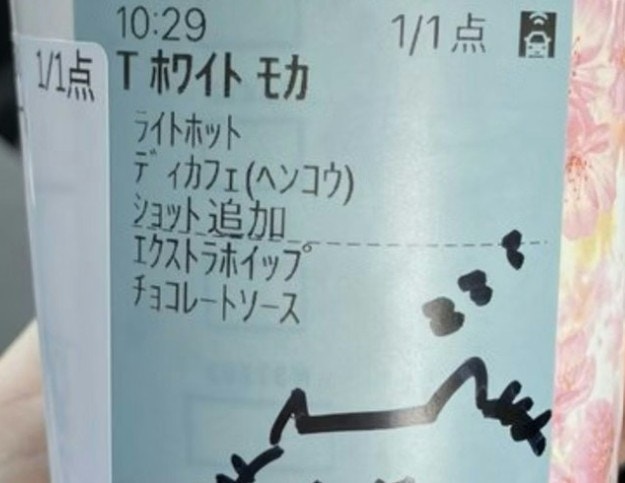 10:29 1/1点
1/1点 T ホワイト モカ
ライトホット
ディカフェ(ヘンコウ)
ショット追加
エクストラホイップ
チョコレートソース